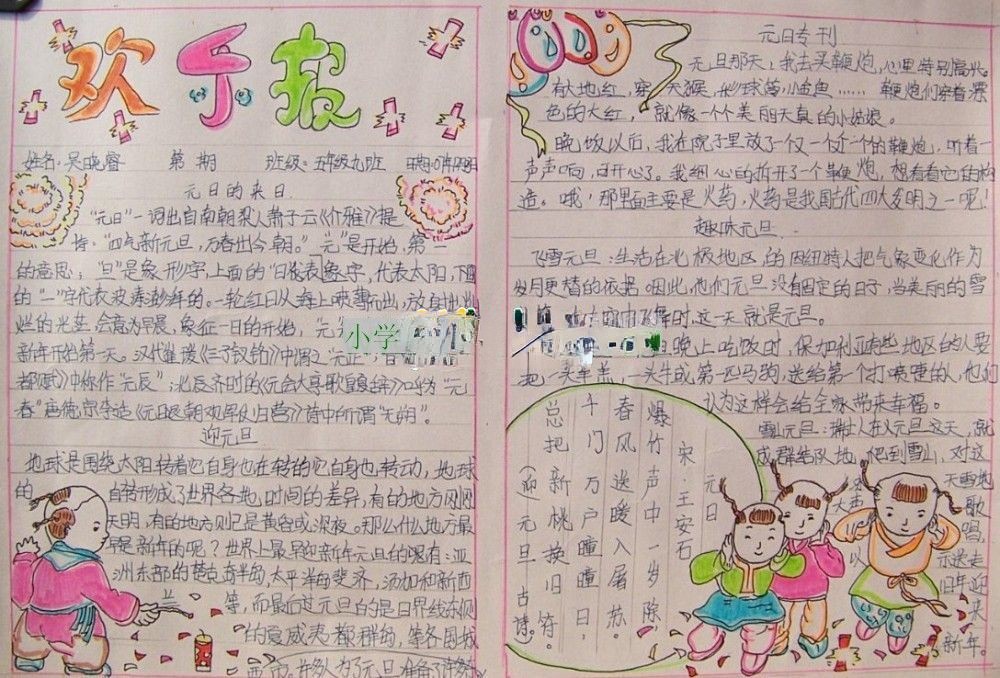 欢乐报
姓名:吴晓睿 第 期 班级:五年级九班
元日的来日
"元日"一词出自南朝梁人萧子云《介雅》提
"四气新元旦,万春出今朝。""元"是开始,第一
的意思;"旦"是象形字,上面的"日"代表象字,代表太阳,下面
的"一"字代表波涛澎湃的。一轮红日从海上喷薄而出,放射出灿
烂的光芒,会意为早晨,象征一日的开始,"元
新年开始第一天。汉代崔瑗《三子钗铭》中谓之"元正"
都赋》中你作"元辰";北辰齐时的《元会大享歌皇夏辞》中呼为"元
春"唐德宗李适《元日退朝观军仗归营》诗中所谓"元朔"。
迎元旦
地球是围绕太阳转着它自身也在转的它自身也转动,地球
的 自转形成了世界各地,时间的差异,有的地方刚刚
天明,有的地方则已是黄昏或深夜。那么什么地方最
早是新年的呢?世界上最早迎新年元旦的嘿有:亚
洲东部的楚克奇半岛,太平洋的斐济,汤加和新西
等,而最后过元旦的是日界线东侧
的夏威夷都群岛,等各国城
元日专刊
元旦那天,我去买鞭炮,心里特别高兴。
有大地红,穿天猴,彩球蛋,小金鱼……鞭炮们穿着漂
色的大红,就像一个个美丽天真的小姑娘。
晚饭以后,我在院子里放了一仅一个近一个的鞭炮,听着一
声声响,可开心了。我细心的拆开了一个鞭炮,想看看它的构
造。哦,那里面主要是火药,火药是我国古代四大发明之一呢!
趣味元旦
飞雪元旦:生活在北极地区的因纽特人把气象变化作为
岁月更替的依据。因此,他们元旦没有固定的日子,当美丽的雪
飞舞时,这一天就是元旦。
晚上吃饭时,保加利亚有些地区的人要
把一头羊羔,一头牛或第一匹马驹,送给第一个打喷嚏的人,他们
认为这样会给全家带来幸福。
雪山元旦:瑞士人在义元旦这天,就
成群结队地,爬到雪山,对这
天雪地
大声歌
唱
以示送走
旧年迎
来
新年。
元日
宋·王安石
爆竹声中一岁除
春风送暖入屠苏。
千门万户曈曈日,
总把新桃换旧符。
(迎元旦古诗。
小学